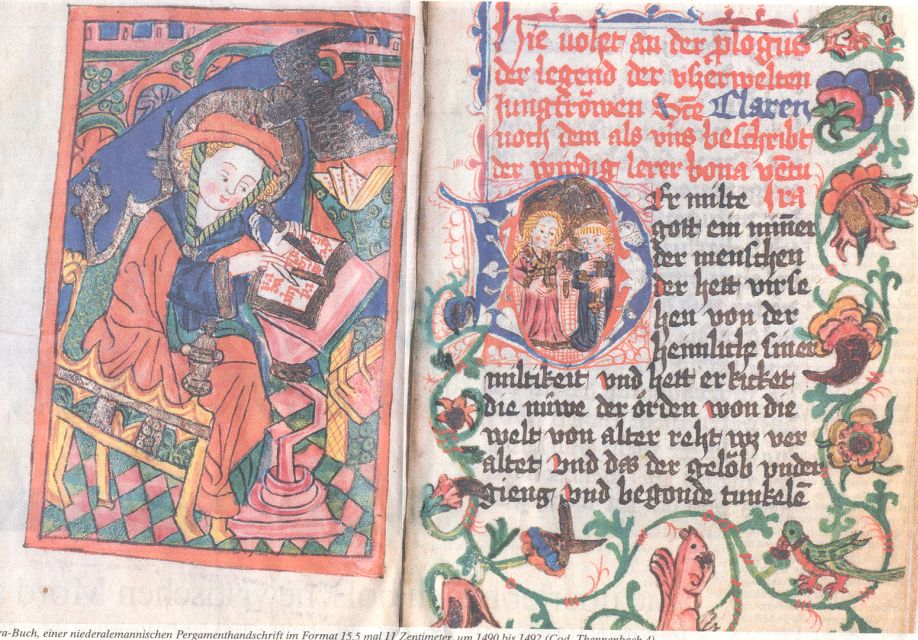 Hie volget an der ꝓlogus
der legend der vßerwelten
Jungfröwen Scte Claren
noch dem als vns beschribt
der wirdig lerer bona ventu
ra
Er milte
gott ein mineͬ
der menschen
der hett virse
hen von der
heimliche siner
miltikeit vnd hett erkicket
die nüwe der örden won die
welt von alter reht wz ver
altet vnd das der gelöb vnder
gieng vnd begonde tunkelē
ra-Buch, einer niederalemannischen Pergamenthandschrift im Format 15,5 mal 11 Zentimeter, um 1490 bis 1492 (Cod. Thennenbach 4)